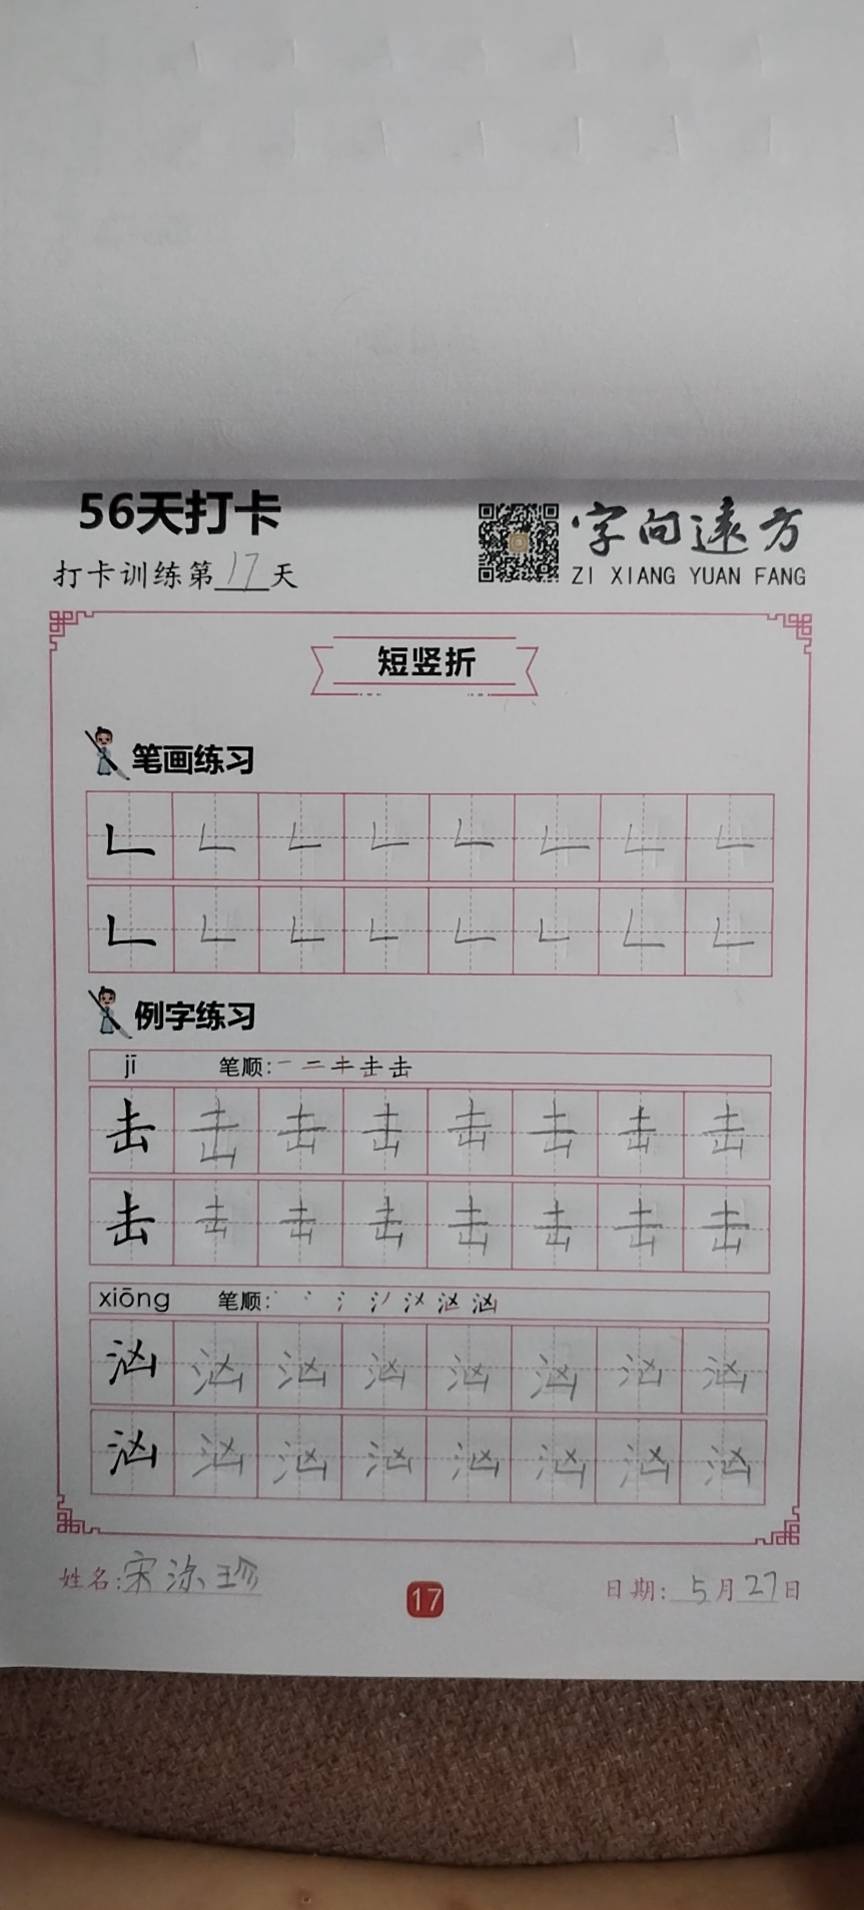 56天打卡
字向远方
打卡训练第17天
ZI XIANG YUAN FANG
短竖折
笔画练习
𠃊 𠃊 𠃊 𠃊 𠃊 𠃊 𠃊 𠃊
𠃊 𠃊 𠃊 𠃊 𠃊 𠃊 𠃊 𠃊
例字练习
jī 笔顺: 一 二 キ 击 击
击 击 击 击 击 击 击 击
击 击 击 击 击 击 击 击
xiōng 笔顺:
汹 汹 汹 汹 汹 汹 汹 汹
汹 汹 汹 汹 汹 汹 汹 汹
姓名:宋 珍
17
日期: 5月27日